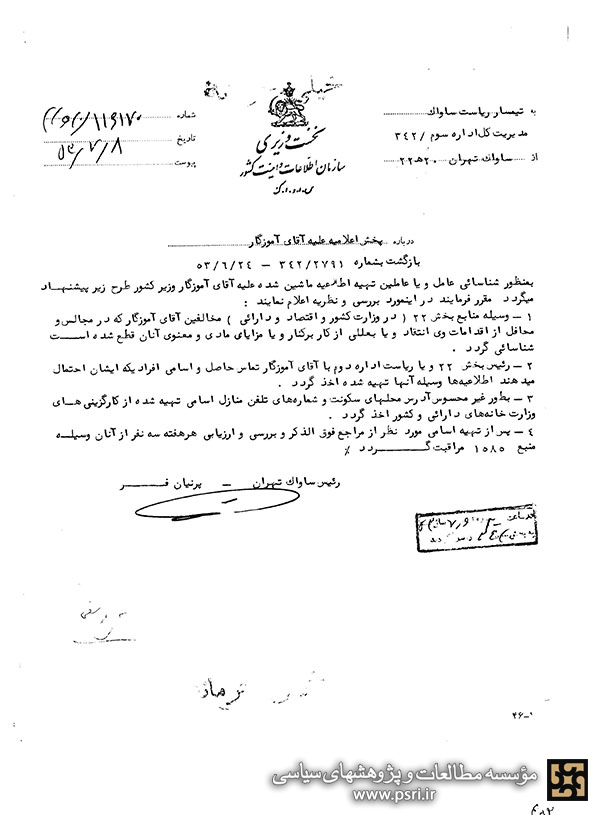 به تیمسار ریاست ساواک
مدیریت کل اداره سوم /۳۴۲
از ساواک تهران ۲۰هـ۲۲
نخست وزیری
سازمان اطلاعات و امنیت کشور
شماره ۱۱۶۱۷۰
تاریخ ۵۳/۷/۸
پیوست
درباره پخش اعلامیه علیه آقای آموزگار
بازگشت بشماره ۳۴۲/۲۷۹۱ – ۵۳/۶/۲۴
بمنظور شناسائی عامل و یا عاملین تهیه اطلاعیه ماشین شده علیه آقای آموزگار وزیر کشور طرح زیر پیشنهاد
میگردد مقرر فرمایند در اینمورد بررسی و نظریه اعلام نمایند :
۱ – وسیله منابع بخش ۲۲ ( در وزارت کشور و اقتصاد و دارائی ) مخالفین آقای آموزگار که در مجالس و
محافل از اقدامات وی انتقاد و یا بعللی از کار برکنار و یا مزایای مادی و معنوی آنان قطع شده است
شناسائی گردد .
۲ – رئیس بخش ۲۲ و یا ریاست اداره دوم با آقای آموزگار تماس حاصل و اسامی افراد یکه ایشان احتمال
میدهند اطلاعیه‌ها وسیله آنها تهیه شده اخذ گردد .
۳ – بطور غیر محسوس آدرس محلهای سکونت و شماره‌های تلفن منازل اسامی تهیه شده از کارگزینی های
وزارت خانه‌های دارائی و کشور اخذ گردد .
۴ – پس از تهیه اسامی مورد نظر از مراجع فوق الذکر و بررسی و ارزیابی هر هفته سه نفر از آنان وسیله
منبع ۱۵۸۵ مراقبت گردد ٪
رئیس ساواک تهران – پرنیان فر
۴۶-۱
مؤسسه مطالعات و پژوهشهای سیاسی
www.psri.ir